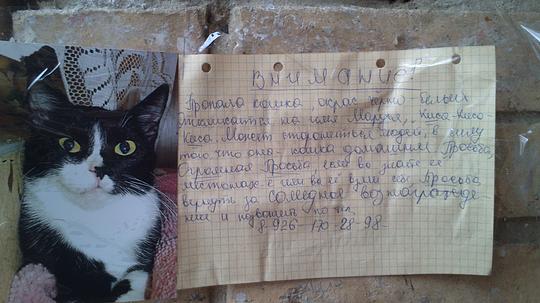 ВНИМАНИЕ!
Пропала кошка, окрас черно-белый
откликается на имя Маруся, Киса-Киса-
Киса. Может сторониться людей, в силу
того что она кошка домашняя. Просьба,
Огромная Просьба, если вы знаете её
местонах-е или вы её взяли себе, Просьба
вернуть за солидное вознагражде
ние и позвонить по тел.
8-926-170-28-98